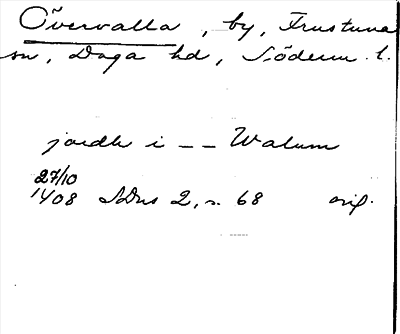 Övervalla, by, Frustuna
sn, Daga hd, Söderm. l.
jordh i -- Walum
27/10
1408 SDns 2, s. 68 orig.